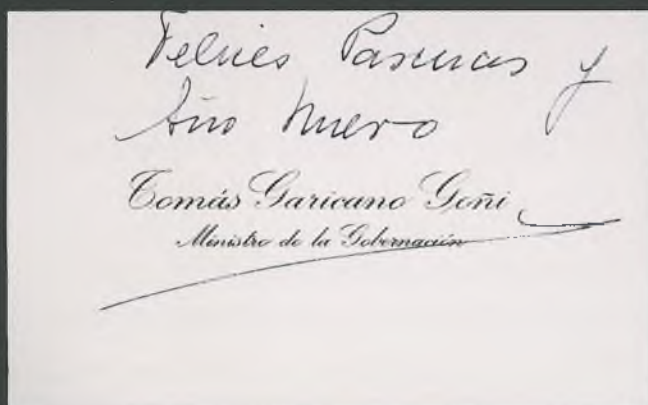 Felices Pascuas y
Año Nuevo
Tomás Garicano Goñi
Ministro de la Gobernación